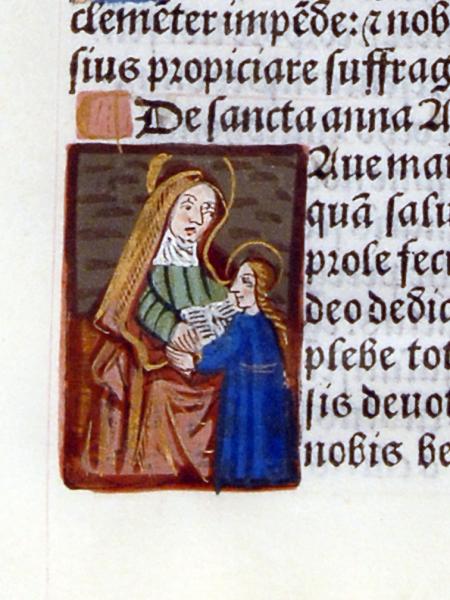 clemēter impēde: ⁊ nob
sius propiciare suffrag
De sancta anna A
Aue mat
quā salu
prole fec
deo dedic
plebe tot
sis deuot
nobis be